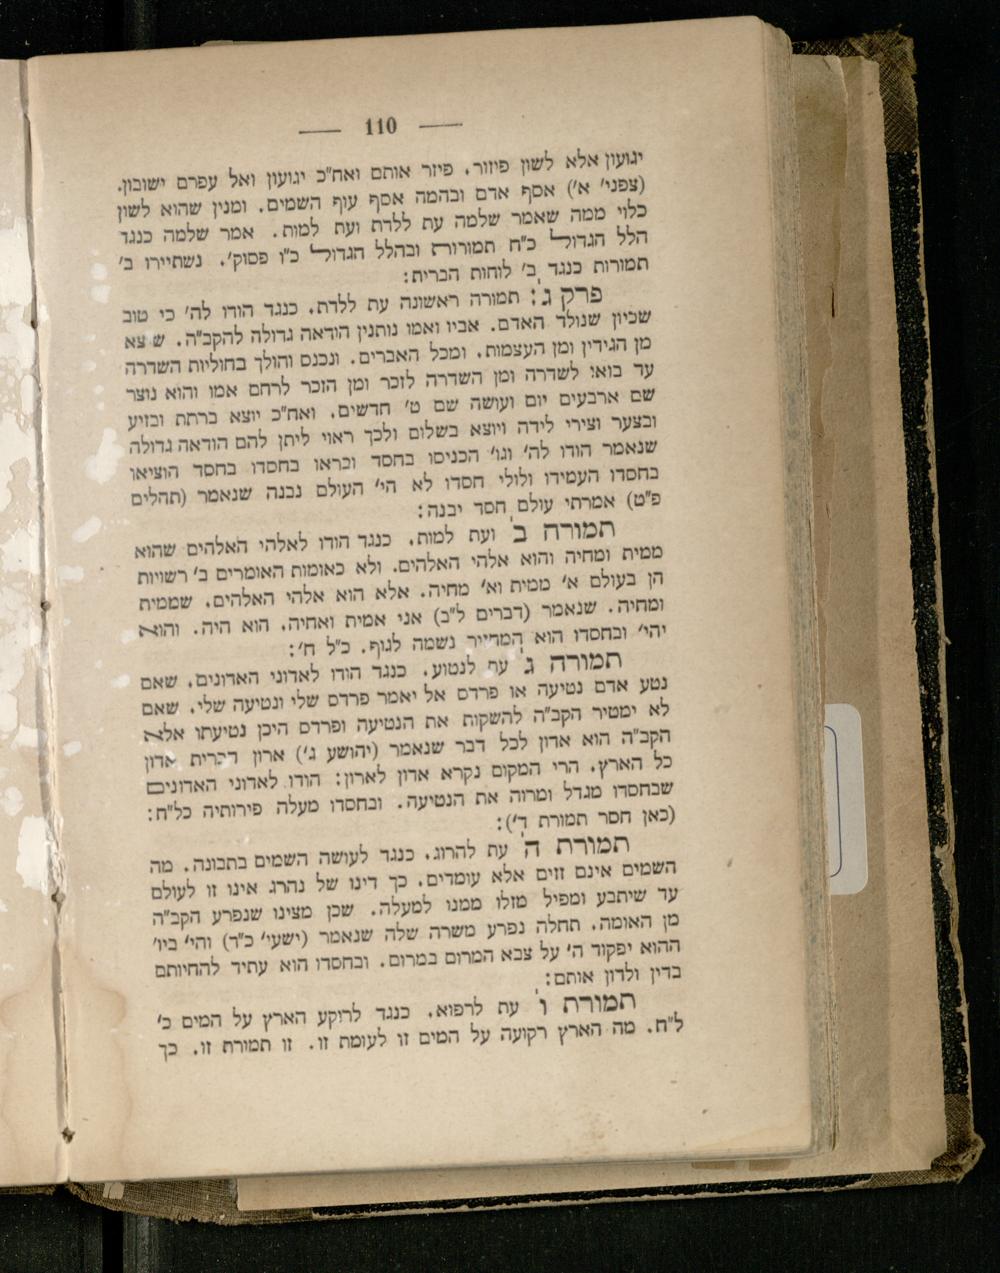 — 110 —
יגועון אלא לשון פיזור. פיזר אותם ואח"כ יגועון ואל עפרם ישובון.
(צפני' א') אסף אדם ובהמה אסף עוף השמים. ומנין שהוא לשון
כלוי ממה שאמר שלמה עת ללדת ועת למות. אמר שלמה כנגד
הלל הגדול כ"ח תמורות ובהלל הגדול כ"ו פסוק'. נשתיירו ב'
תמורות כנגד ב' לוחות הברית:
פרק ג': תמורה ראשונה עת ללדת. כנגד הודו לה' כי טוב
שכיון שנולד האדם. אביו ואמו נותנין הודאה גדולה להקב"ה. ש צא
מן הגידין ומן העצמות. ומכל האברים. ונכנס והולך בחוליות השדרה
עד בואי לשדרה ומן השדרה לזכר ומן הזכר לרחם אמו והוא נוצר
שם ארבעים יום ועושה שם ט' חדשים. ואח"כ יוצא ברתת ובזיע
ובצער וצירי לידה ויוצא בשלום ולכך ראוי ליתן להם הודאה גדולה
שנאמר הודו לה' וגו' הכניסו בחסד ובראו בחסדו בחסד הוציאו
בחסדו העמידו ולולי חסדו לא הי' העולם נבנה שנאמר (תהלים
פ"ט) אמרתי עולם חסד יבנה:
תמורה ב' ועת למות. כנגד הודו לאלהי האלהים שהוא
ממית ומחיה והוא אלהי האלהים. ולא כאומות האומרים ב' רשויות
הן בעולם א' ממית וא' מחיה. אלא הוא אלהי האלהים. שממית
ומחיה. שנאמר (דברים ל"ב) אני אמית ואחיה. הוא היה. והוא
יהי' ובחסדו הוא המחזיר נשמה לגוף. כ"ל ח':
תמורה ג' עת לנטוע. כנגד הודו לאדוני האדונים. שאם
נטע אדם נטיעה או פרדס אל יאמר פרדס שלי ונטיעה שלי. שאם
לא ימטיר הקב"ה להשקות את הנטיעה ופרדס היכן נטיעתו אלא
הקב"ה הוא אדון לכל דבר שנאמר (יהושע ג') ארון הברית אדון
כל הארץ. הרי המקום נקרא אדון לארון: הודו לאדוני האדונים
שבחסדו מגדל ומרוה את הנטיעה. ובחסדו מעלה פירותיה כל"ח:
(כאן חסר תמורת ד'):
תמורת ה' עת להרוג. כנגד לעושה השמים בתבונה. מה
השמים אינם זזים אלא עומדים. כך דינו של נהרג אינו זו לעולם
עד שיתבע ומפיל מזלו ממנו למעלה. שכן מצינו שנפרע הקב"ה
מן האומה. תחלה נפרע משרה שלה שנאמר (ישעי' כ"ד) והי' ביו'
ההוא יפקוד ה' על צבא המרום במרום. ובחסדו הוא עתיד להחיותם
בדין ולדון אותם:
תמורת ו' עת לרפוא. כנגד לרוקע הארץ על המים כ'
ל"ח. מה הארץ רקועה על המים זו לעומת זו. זו תמורת זו. כך